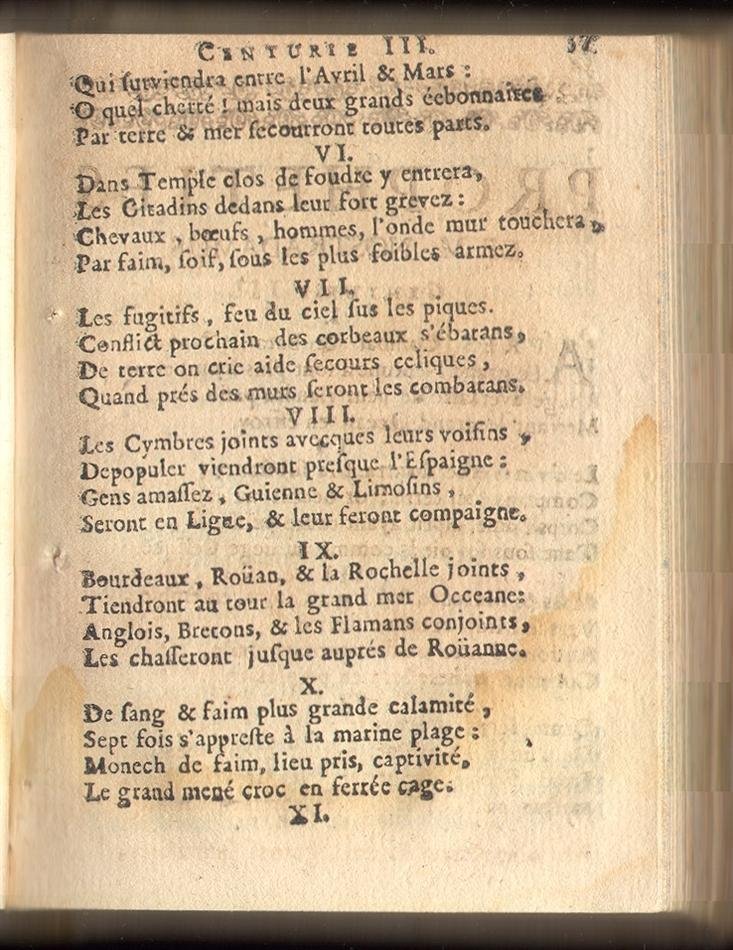 CENTURIE III. 37
Qui surviendra entre l'Avril & Mars :
O quel cherté ! mais deux grands éebonnaires
Par terre & mer secourront toutes parts.
VI.
Dans Temple clos de foudre y entrera,
Les Citadins dedans leur fort grevez :
Chevaux , bœufs , hommes, l'onde mur touchera,
Par faim, soif, sous les plus foibles armez.
VII.
Les fugitifs , feu du ciel sus les piques.
Conflict prochain des corbeaux s'ébatans,
De terre on crie aide secours celiques ,
Quand prés des murs seront les combatans.
VIII.
Les Cymbres joints avecques leurs voisins ,
Depopuler viendront presque l'Espaigne :
Gens amassez, Guienne & Limosins ,
Seront en Ligue, & leur feront compaigne.
IX.
Bourdeaux , Roüan, & la Rochelle joints ,
Tiendront au tour la grand mer Occeane:
Anglois, Bretons, & les Flamans conjoints,
Les chasseront jusque auprés de Roüanne.
X.
De sang & faim plus grande calamité ,
Sept fois s'appreste à la marine plage :
Monech de faim, lieu pris, captivité,
Le grand mené croc en ferrée cage.
XI.